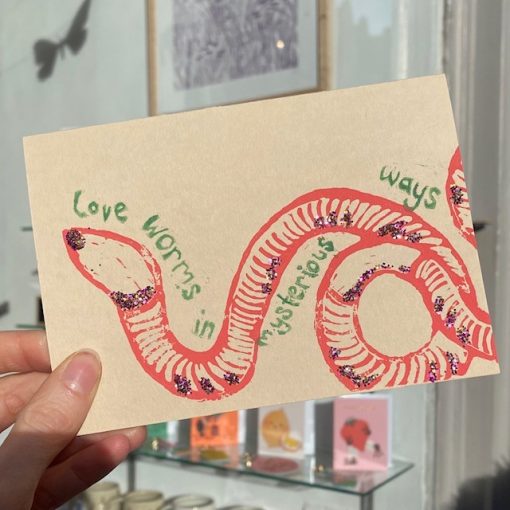 Love worms in mysterious ways